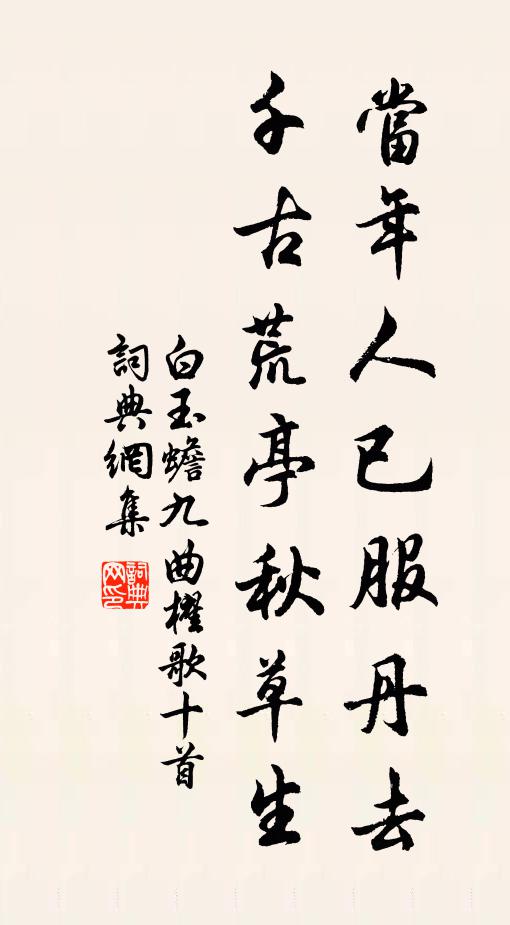 當年人已服丹去
千古荒亭秋草生
白玉蟾九曲櫂歌十首
詞典網集
詞典
网印